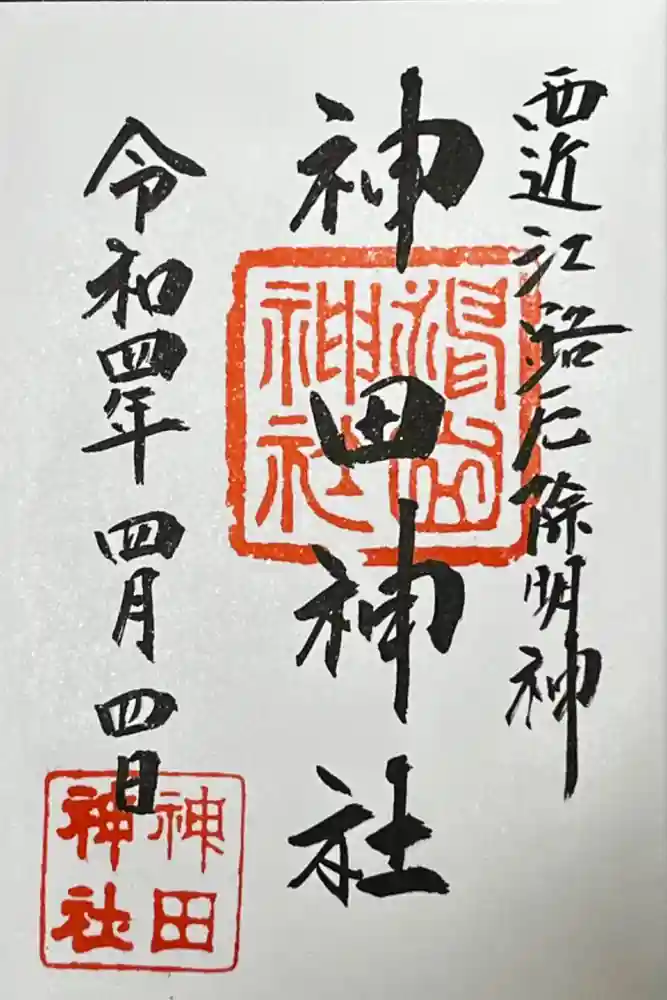 西近江路厄除明神
神田神社
神社
令和四年四月四日
神田
神社